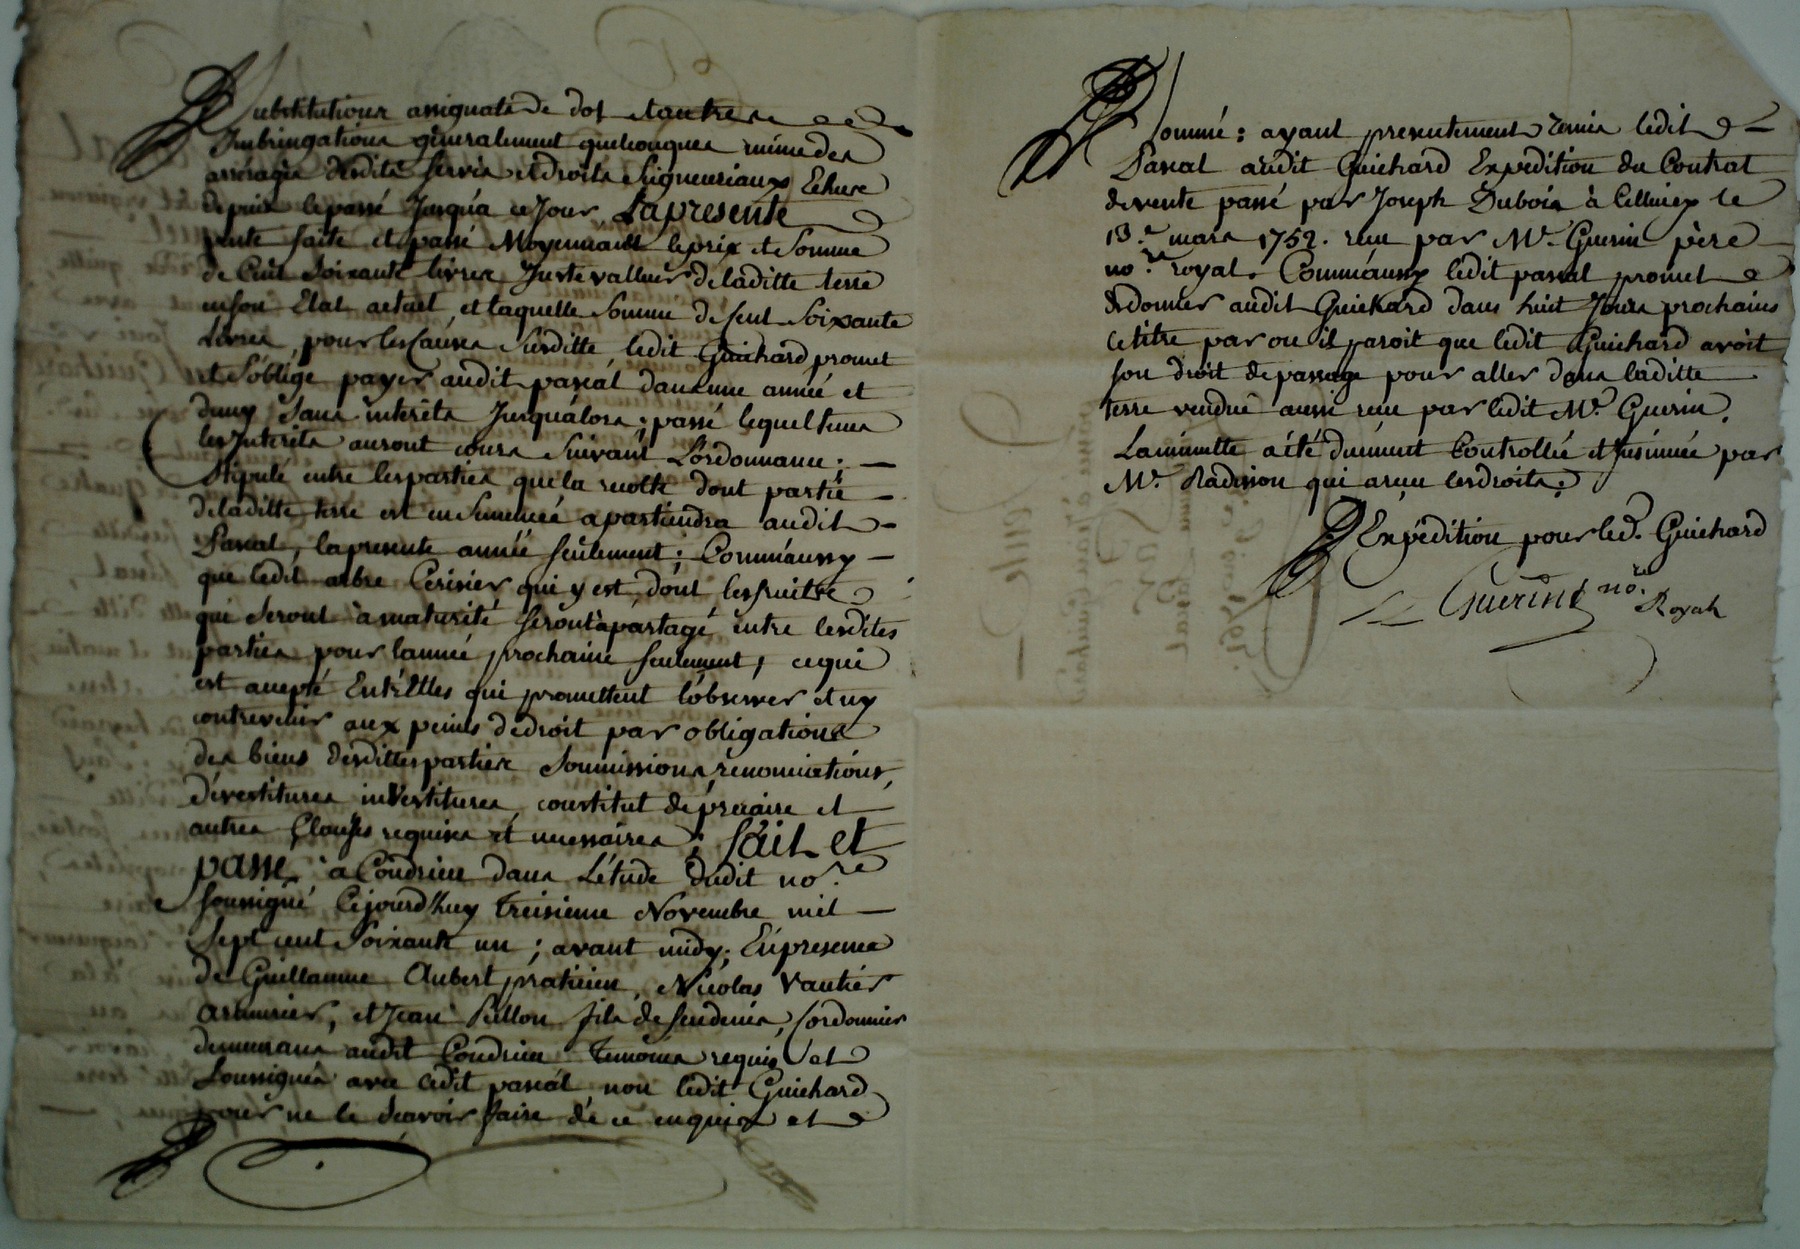 substitutions assignats de dot et autres
Inbringations généralement quelconques même des
arrérages desdits servis et droits seigneuriaux Echus
depuis le passé Jusqu'à ce Jour, La presente
vente faite et passé Moyennant le prix et somme
de Cent soixante livres Juste valleur de laditte terre
en son Etat actuel, et laquelle somme de Cent soixante
livres, pour les causes susditte, ledit Guichard promet
et s'oblige payer audit pascal dans une année et
demy sans interêts Jusqu'alors ; passé lequel tems
les Interêts auront cours suivant L'ordonnance ; —
stipulé entre les parties que la recolte dont partie —
de laditte terre est ensemencée apartiendra audit —
Pascal, la presente année seulement ; Comm'aussy —
que ledit arbre Cerisier qui y est, dont les fruits
qui seront a maturité seront apartagé entre lesdites
parties pour l'année prochaine seulement, ce qui
est accepté Entr'Elles qui promettent l'observer et ny
contrevenir aux peines de droit par obligations
des biens desdittes parties soumissions, renonciations,
devestitures investitures, constitut de précaire et
autres Clauses requises et necessaires, fait et
passé a Condrieu dans L'étude dudit no.re
soussigné Cejourd'huy treisieme Novembre mil —
sept cent soixante un ; avant midy ; En presence
de Guillaume Aubert praticien, Nicolas Vautier
armurier, et Jean fils de feu denis, Cordonnier
demeurans audit Condrieu temoins requis et
soussignés avec ledit pascal, non ledit Guichard
pour ne le sçavoir faire de ce enquis et
sommé : ayant presentement remis ledit
Pascal audit Guichard Expedition du Contrat
de vente passé par Joseph Dubois à le
13.e mars 1752. reçu par M.e Guerin père
no.re royal. Comm'aussy ledit pascal promet
de donner audit Guichard dans huit Jours prochains
le titre par ou il paroit que ledit Guichard avoit
son droit de passage pour aller dans laditte
terre vendue aussi reçu par ledit M.e Guerin.
La minutte a été duement Controllée et Insinuée par
M.e Radisson qui a reçu les droits.
Expédition pour led. Guichard
Guerin no.re
Royal